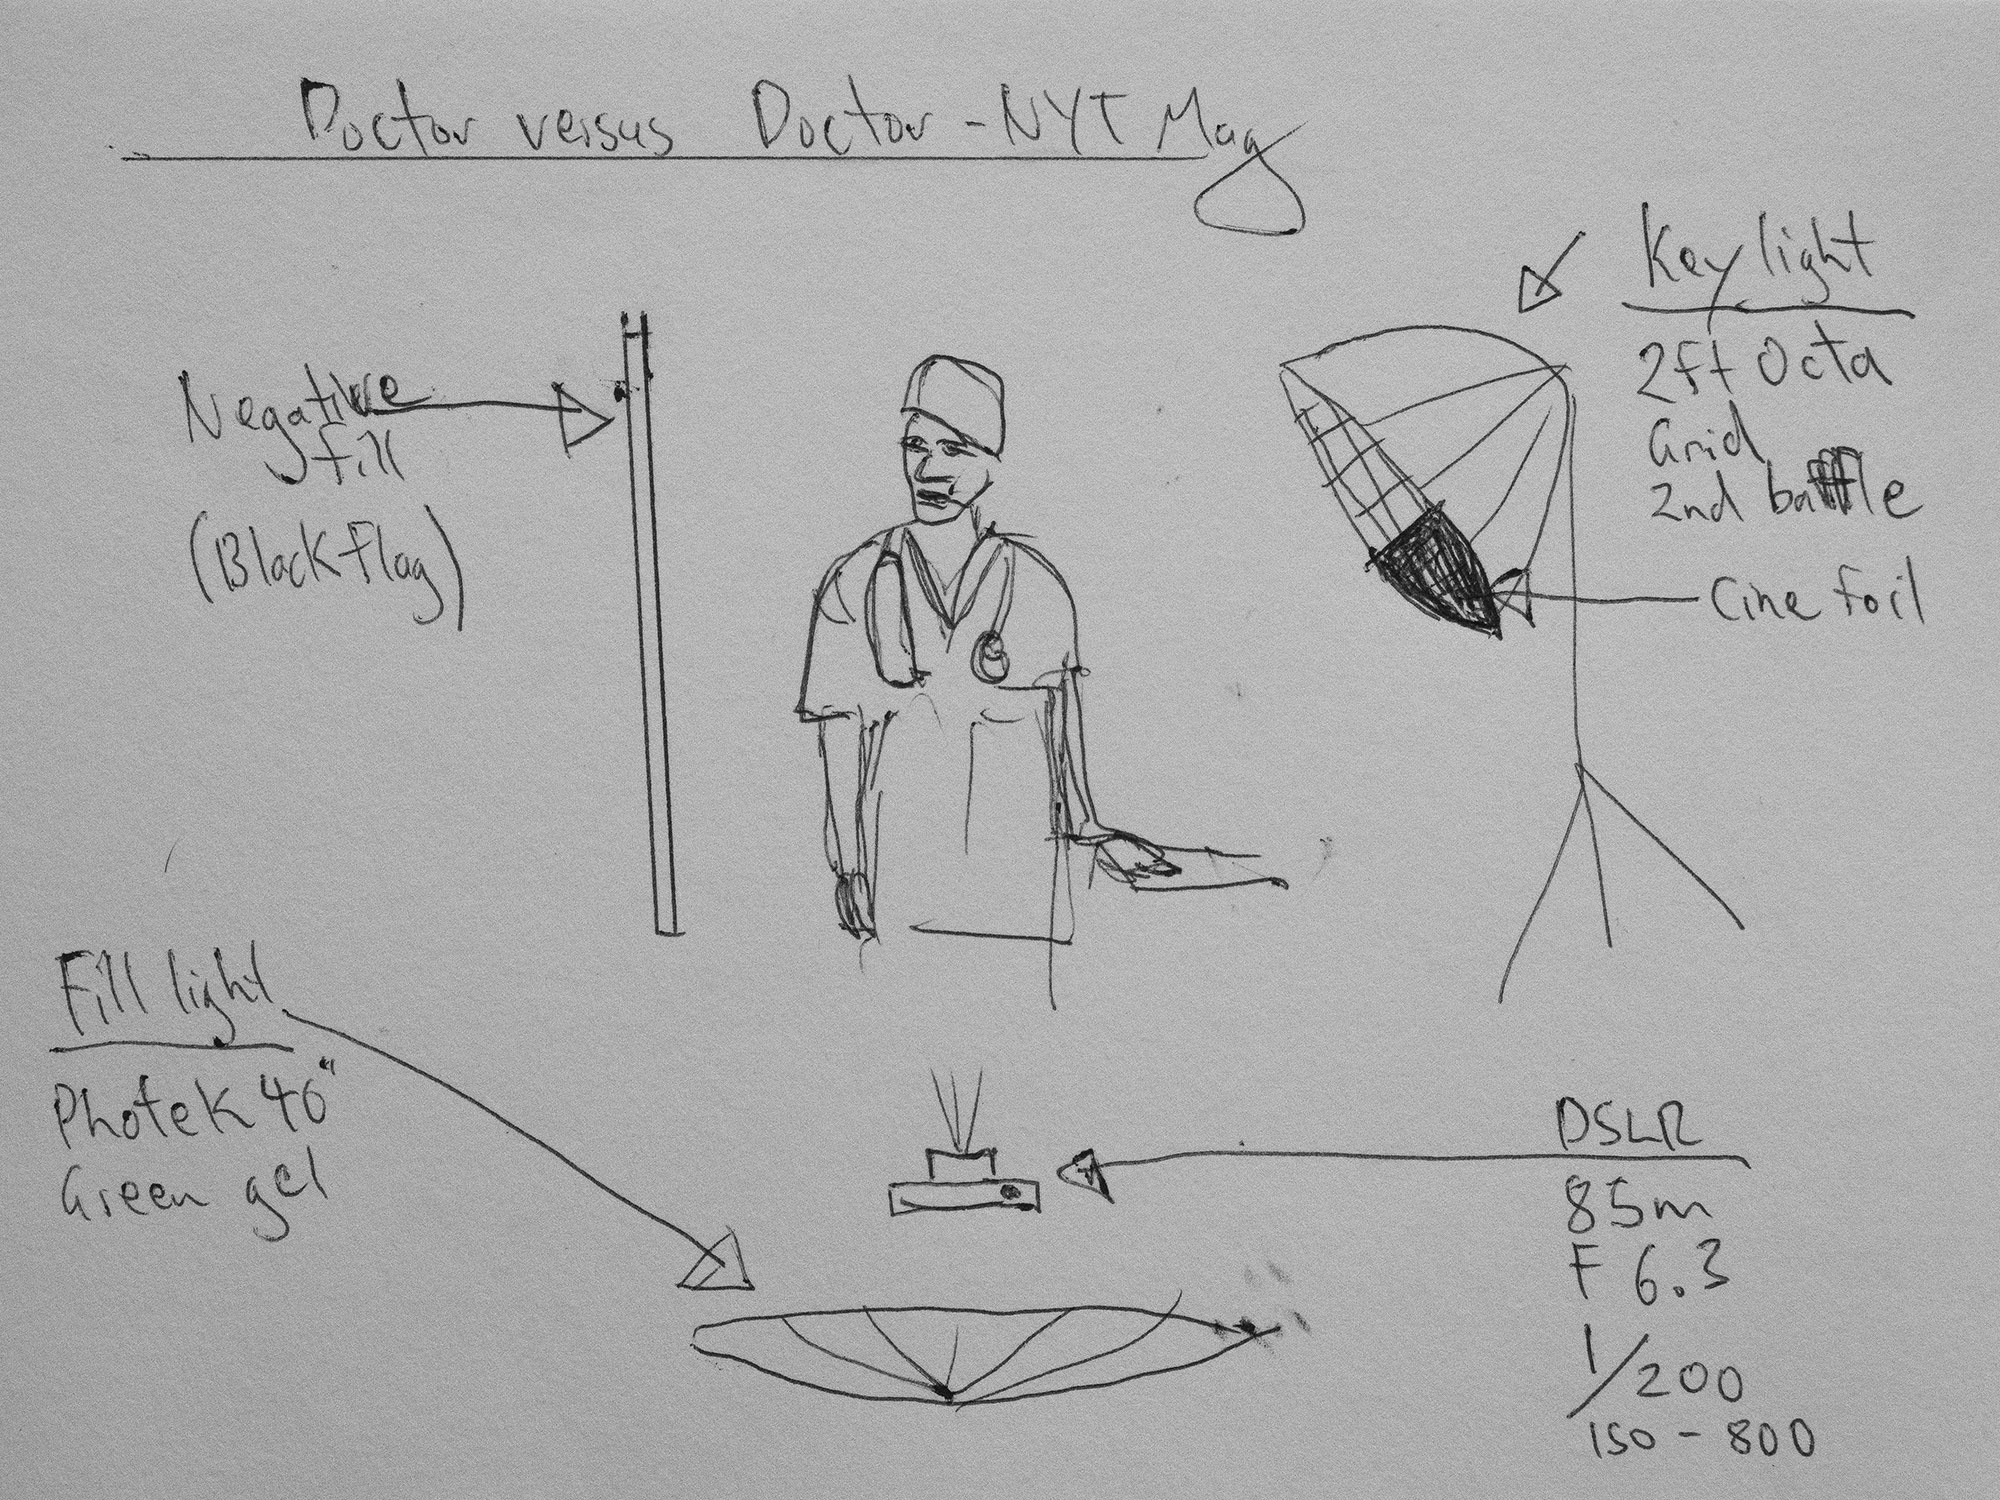 Doctor versus Doctor - NYT Mag
Key light
2ft Octa
Grid
2nd baffle
Cine foil
Negative
fill
(Black flag)
Fill light
Photek 46"
Green gel
DSLR
85m
F 6.3
1/200
ISO - 800